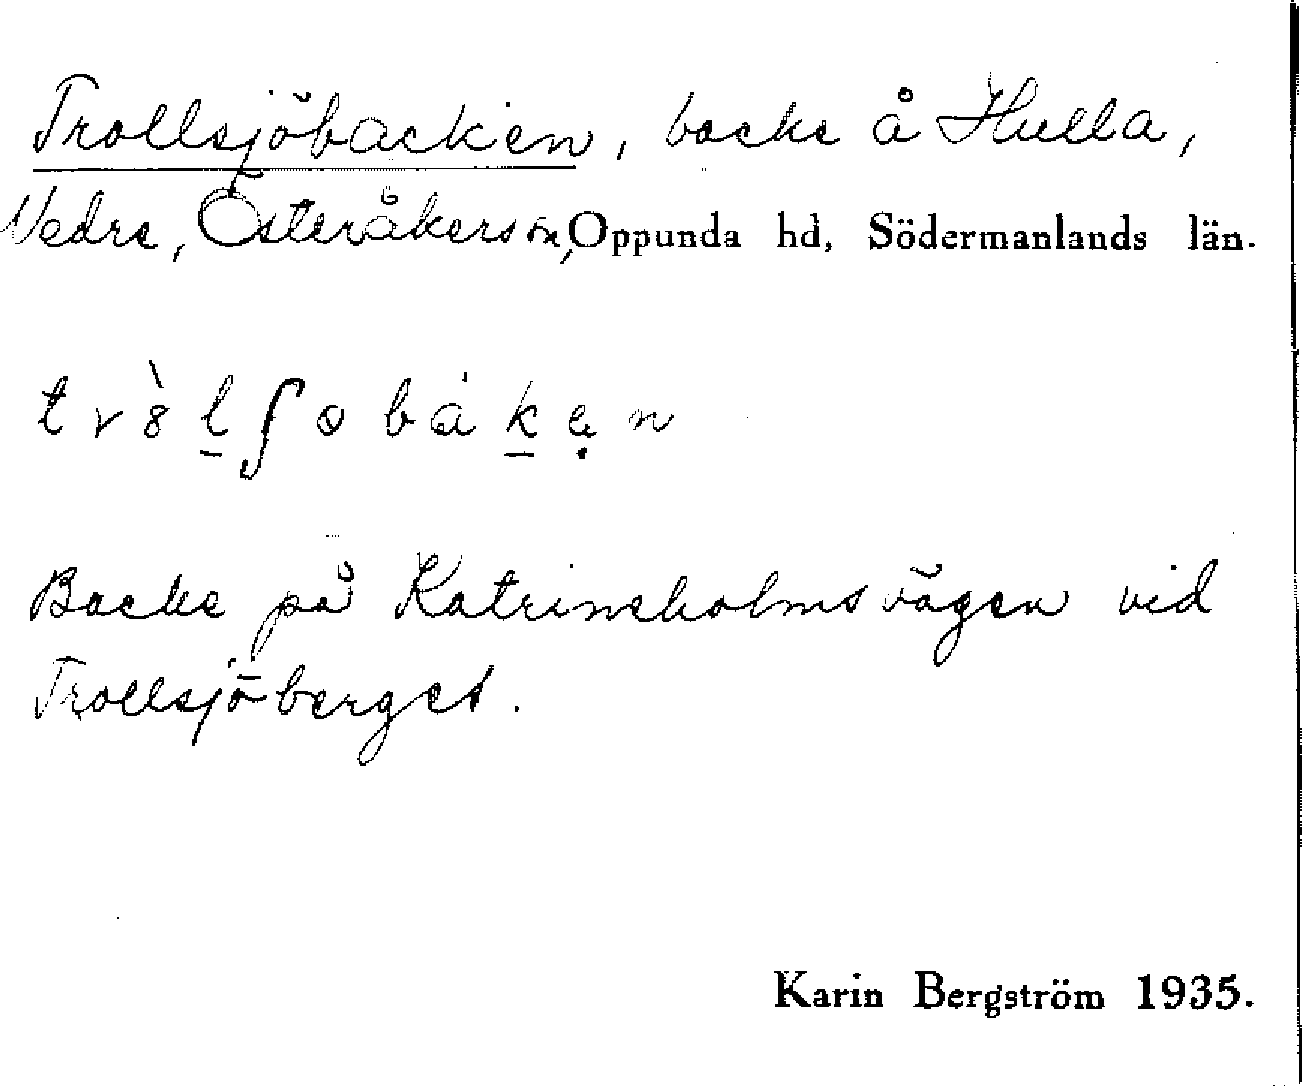 Trollsjöbacken, backe å Hulla,
Vedre, Österåkers sn, Oppunda hd, Södermanlands län.
Backe på Katrineholmsvägen vid
Trollsjöberget.
Karin Bergström 1935.